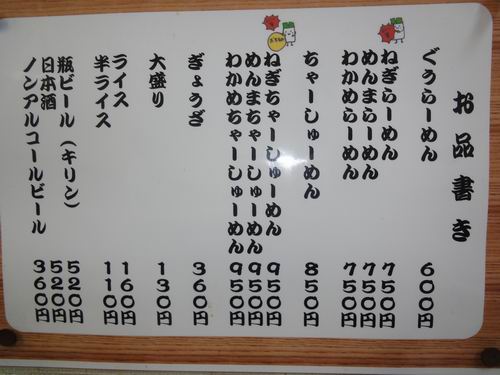 お品書き
ぐうらーめん 600円
ねぎらーめん 750円
めんまらーめん 750円
わかめらーめん 750円
ちゃーしゅーめん 850円
ねぎちゃーしゅーめん 950円
めんまちゃーしゅーめん 950円
わかめちゃーしゅーめん 950円
ぎょうざ 360円
大盛り 130円
ライス 160円
半ライス 110円
瓶ビール(キリン) 520円
日本酒 520円
ノンアルコールビール 360円